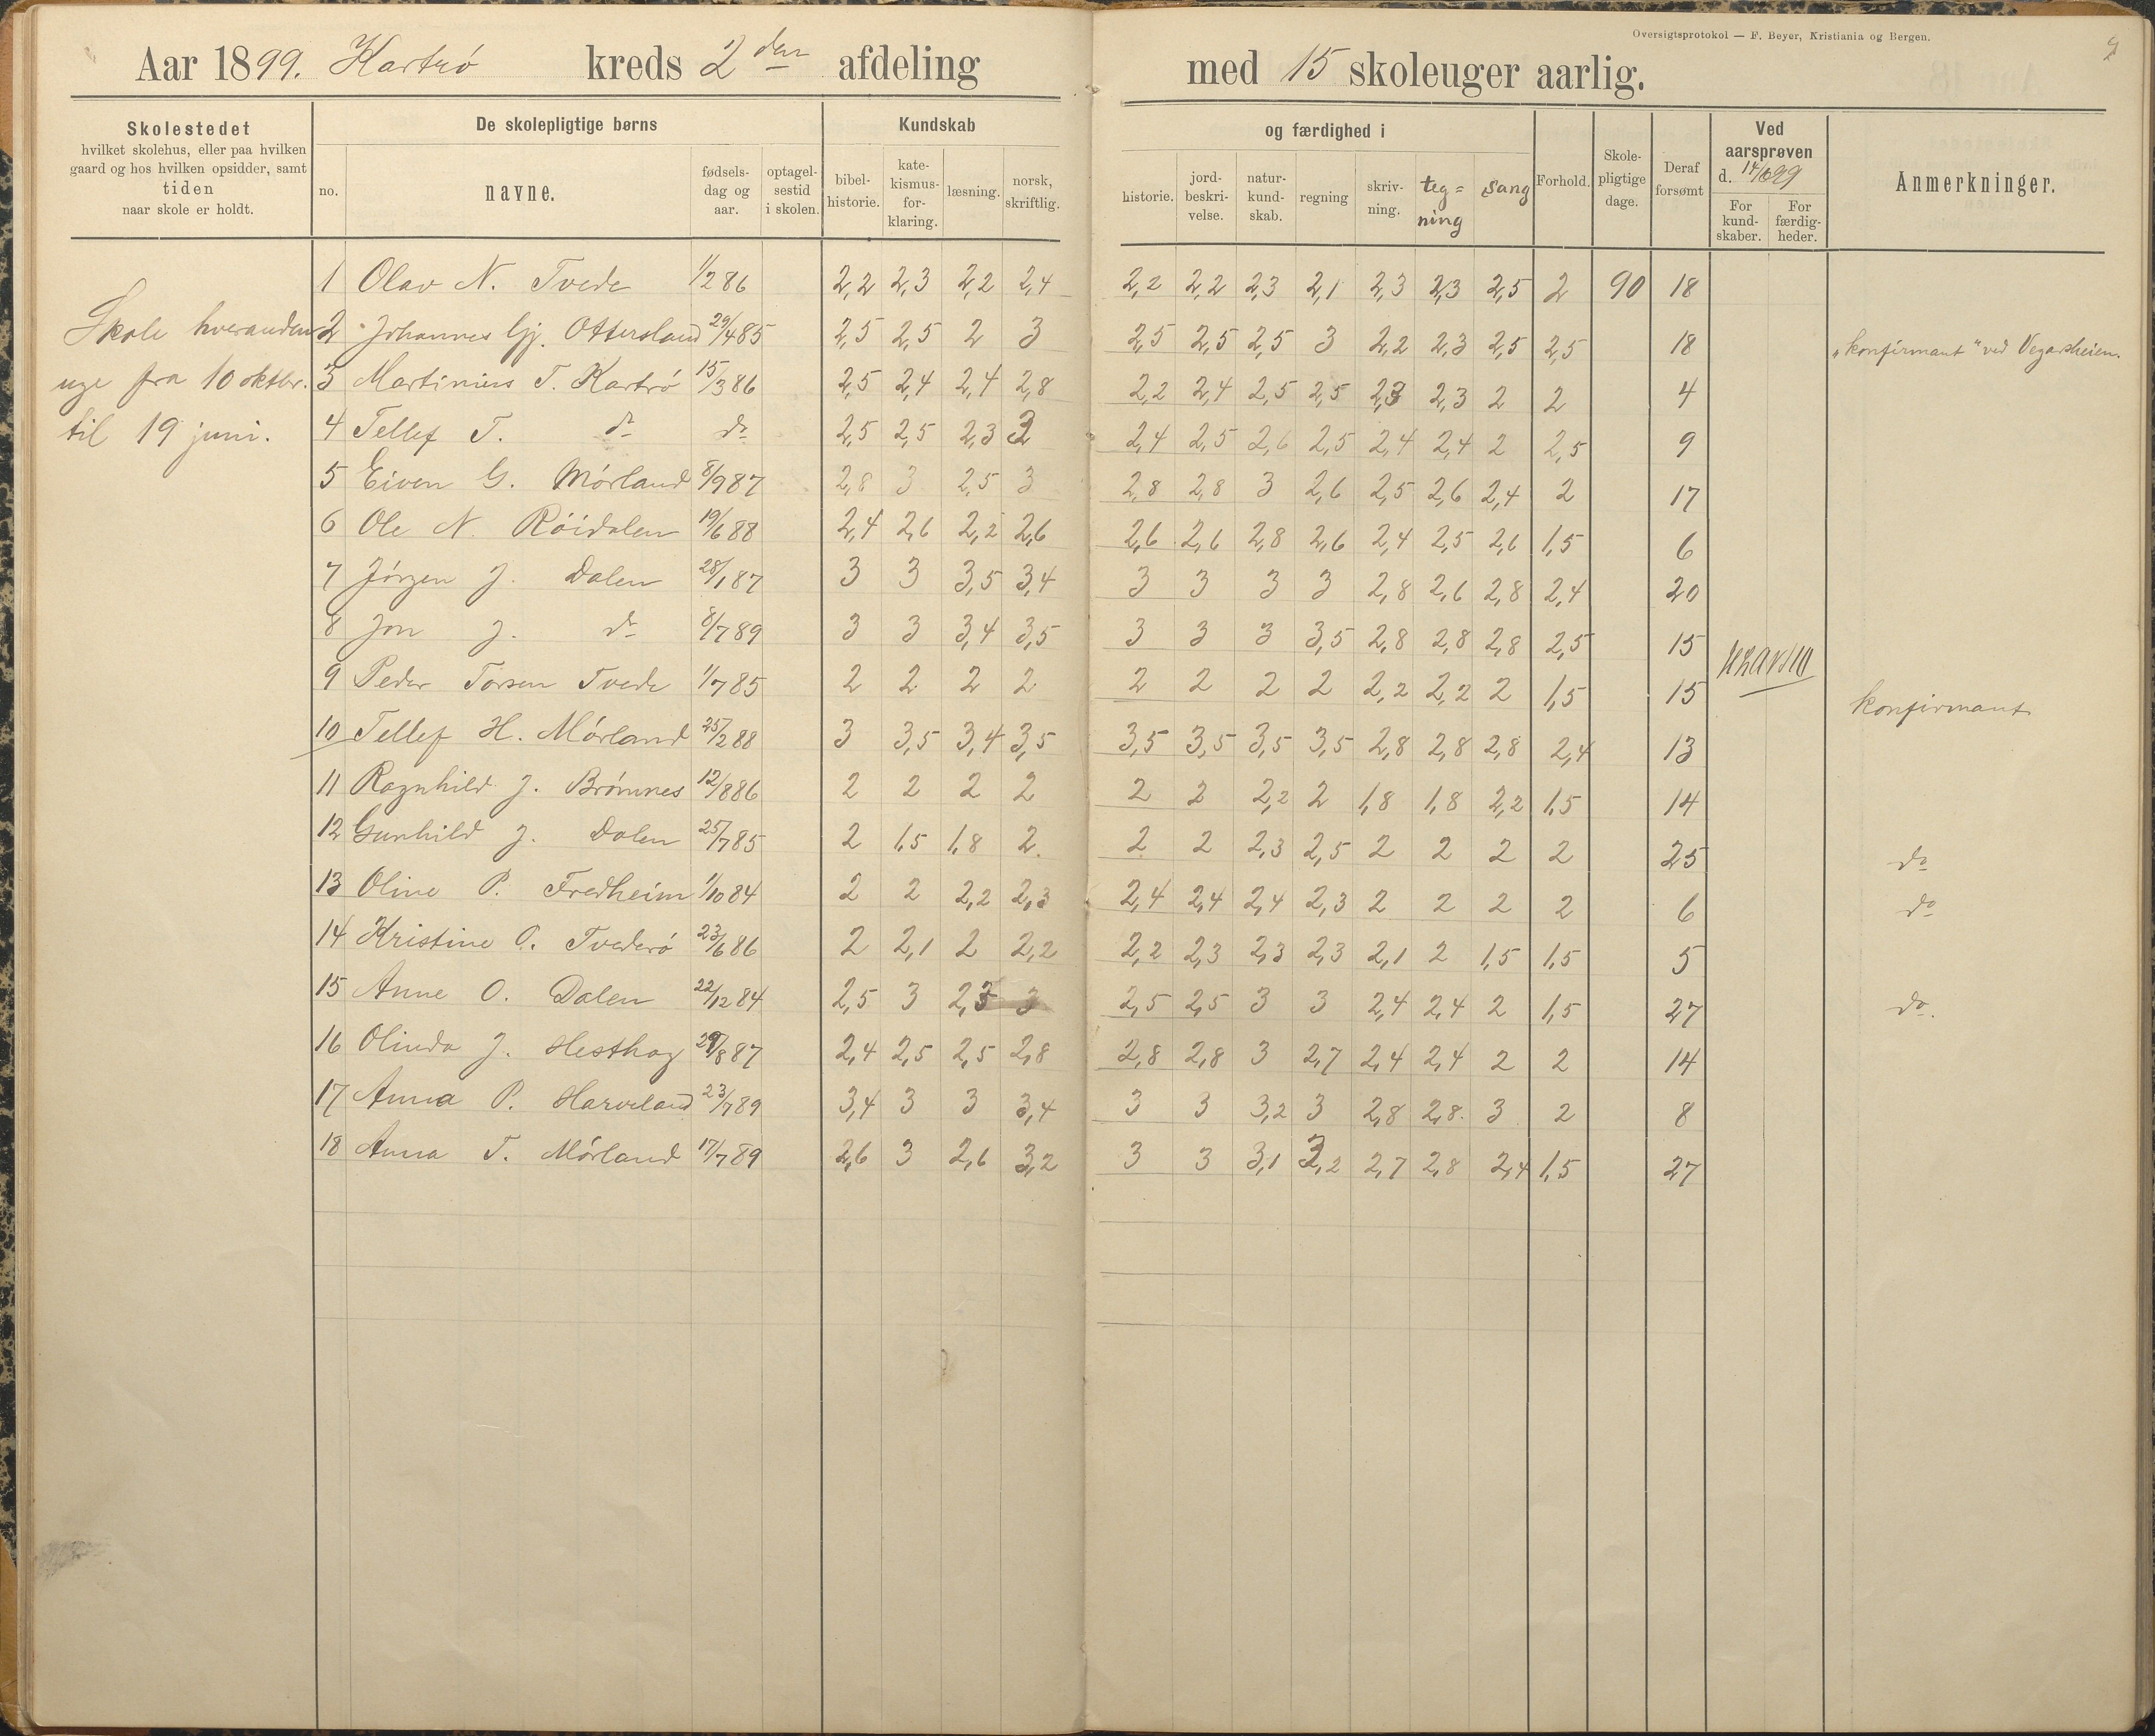 Oversigtsprotokol — F. Beyer, Kristiania og Bergen.
Aar 1899. Kartrø kreds 2den afdeling med 15 skoleuger aarlig.
Skolestedet
hvilket skolehus, eller paa hvilken
gaard og hos hvilken opsidder, samt
tiden
naar skole er holdt.
De skolepligtige børns
no.
navne.
fødsels-
dag og
aar.
optagel-
sestid
i skolen.
Kundskab
bibel-
historie.
kate-
kismus-
for-
klaring.
læsning.
norsk,
skriftlig.
og færdighed i
historie.
jord-
beskri-
velse.
natur-
kund-
skab.
regning
skriv-
ning.
teg=
ning
Sang
Forhold.
Skole-
pligtige
dage.
Deraf
forsømt
Ved
aarsprøven
d. 14/6 99
For
kund-
skaber.
For
færdig-
heder.
Anmerkninger.
Skole hveranden
uge fra 10 oktbr.
til 19 juni.
1 Olav N. Tvede 1/2 86 2,2 2,3 2,2 2,4 2,2 2,2 2,3 2,1 2,3 2,3 2,5 2 90 18
2 Johannes Gj. Ottersland 29/4 85 2,5 2,5 2 3 2,5 2,5 2,5 3 2,2 2,3 2,5 2,5 18 "konfirmant" ved Vegarsheien.
3 Martinius T. Kartrø 15/3 86 2,5 2,4 2,4 2,8 2,2 2,4 2,5 2,5 2,3 2,3 2 2 4
4 Tellef T. do do 2,5 2,5 2,3 3 2,4 2,5 2,6 2,5 2,4 2,4 2 2,5 9
5 Eiven G. Mørland 8/9 87 2,8 3 2,5 3 2,8 2,8 3 2,6 2,5 2,6 2,4 2 17
6 Ole N. Røidalen 19/6 88 2,4 2,6 2,2 2,6 2,6 2,6 2,8 2,6 2,4 2,5 2,6 1,5 6
7 Jørgen J. Dalen 28/1 87 3 3 3,5 3,4 3 3 3 3 2,8 2,6 2,8 2,4 20
8 Jon J. do 8/7 89 3 3 3,4 3,5 3 3 3 3,5 2,8 2,8 2,8 2,5 15
9 Peder Torsen Tvede 1/7 85 2 2 2 2 2 2 2 2 2,2 2,2 2 1,5 15 konfirmant
10 Tellef H. Mørland 25/2 88 3 3,5 3,4 3,5 3,5 3,5 3,5 3,5 2,8 2,8 2,8 2,4 13
11 Ragnhild J. Brømnes 12/8 86 2 2 2 2 2 2 2,2 2 1,8 1,8 2,2 1,5 14
12 Gunhild J. Dalen 25/7 85 2 1,5 1,8 2. 2 2 2,3 2,5 2 2 2 2 25 do
13 Oline P. Fredheim 1/10 84 2 2 2,2 2,3 2,4 2,4 2,4 2,3 2 2 2 2 6 do
14 Kristine O. Tvederø 23/6 86 2 2,1 2 2,2 2,2 2,3 2,3 2,3 2,1 2 1,5 1,5 5
15 Anne O. Dalen 22/12 84 2,5 3 2,3 3 2,5 2,5 3 3 2,4 2,4 2 1,5 27 do.
16 Olinda J. Hesthag 29/8 87 2,4 2,5 2,5 2,8 2,8 2,8 3 2,7 2,4 2,4 2 2 14
17 Anna P. Harveland 23/7 89 3,4 3 3 3,4 3 3 3,2 3 2,8 2,8. 3 2 8
18 Anna T. Mørland 17/7 89 2,6 3 2,6 3,2 3 3 3,1 3,2 2,7 2,8 2,4 1,5 27